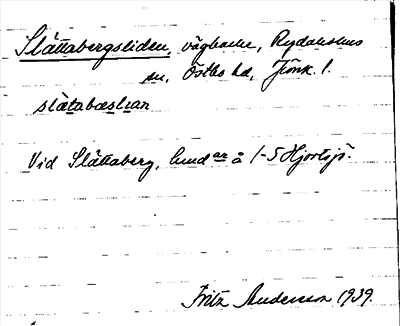 Slättabergsliden, vägbacke, Rydaholms
sn, Östbo hd, Jönk. l.
slätabæslian
Vid Slättaberg, lund ar å 1-5 Hjortsjö.
Fritz Anderson 1939.